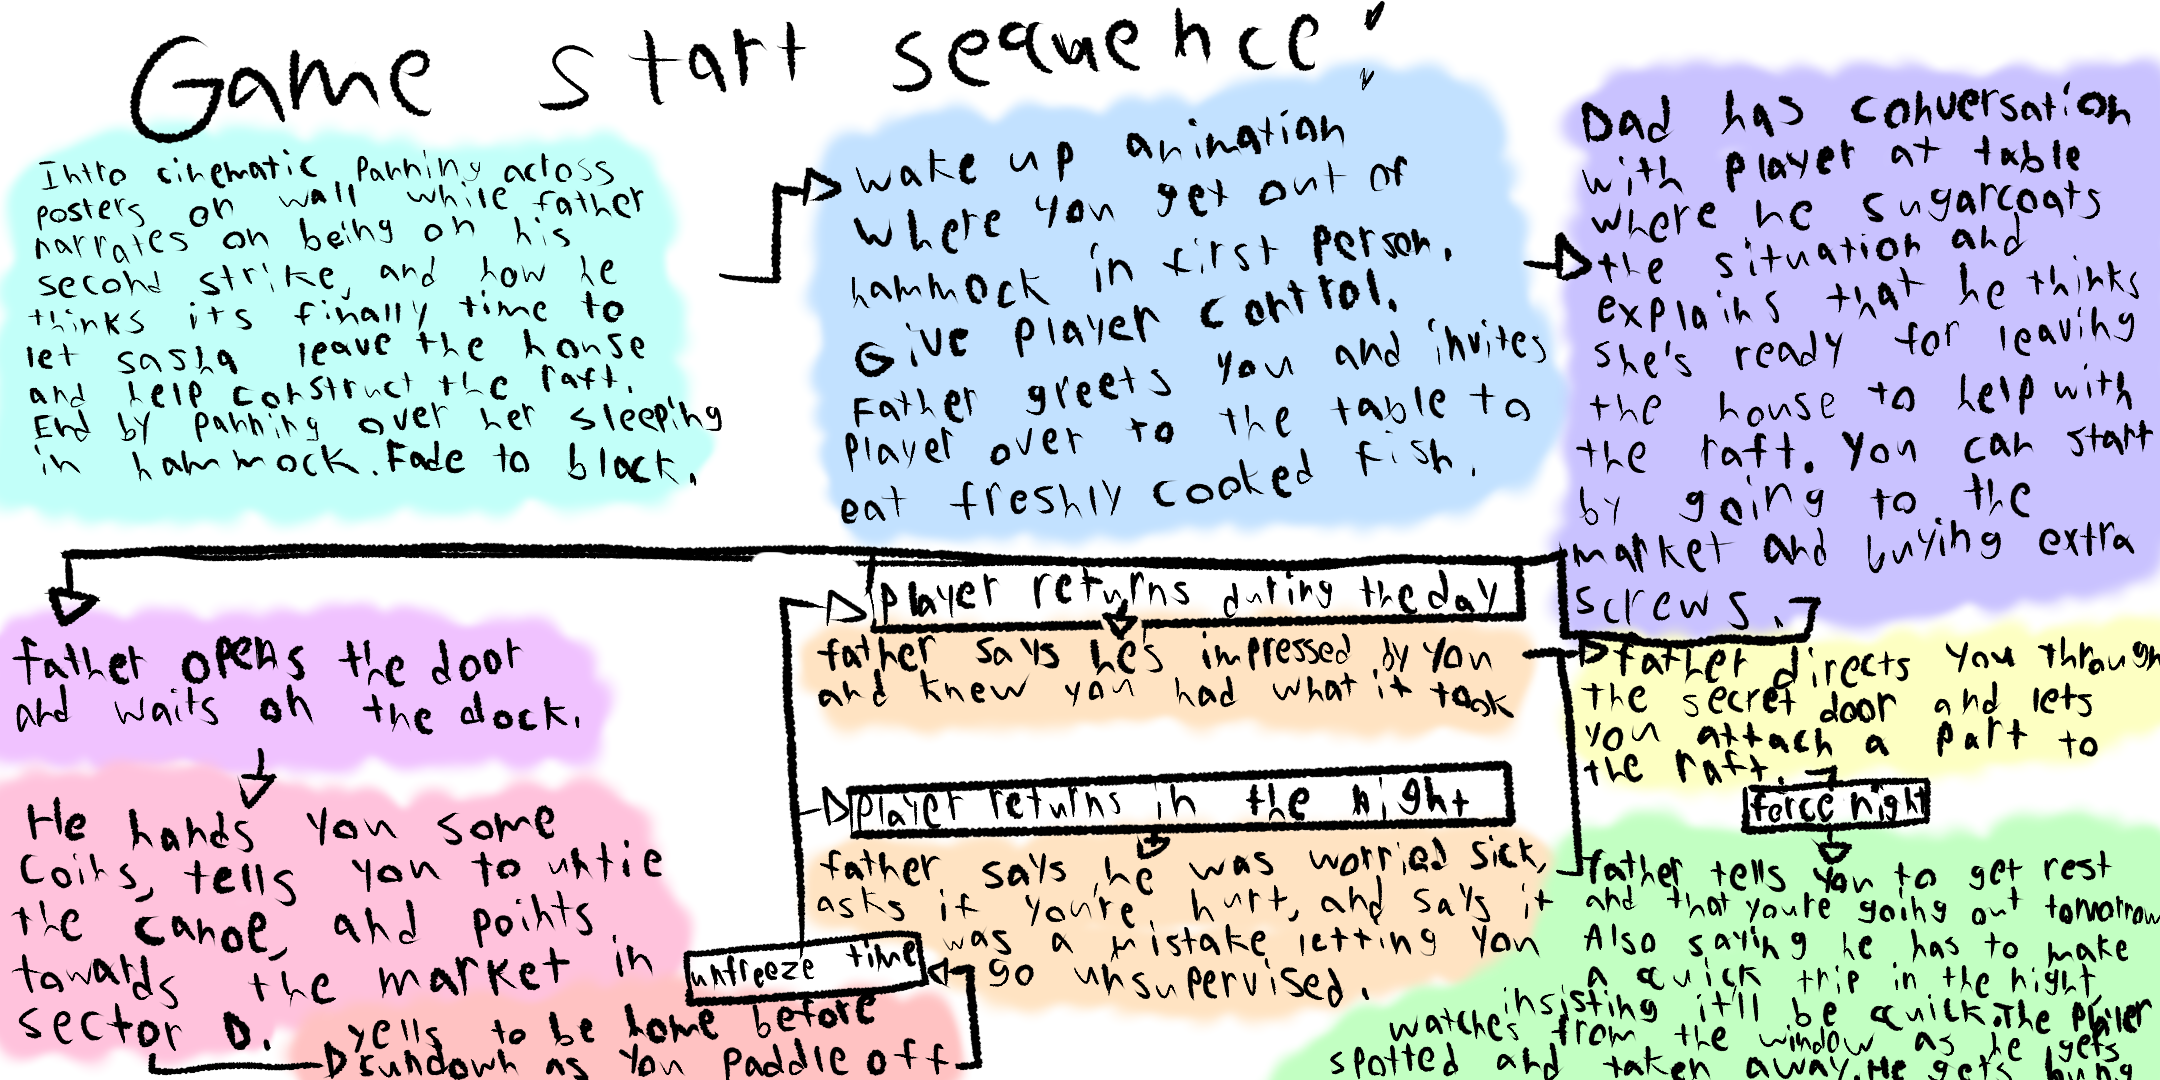 Game start sequence:
Intro cinematic panning across
posters on wall while father
narrates on being on his
second strike, and how he
thinks its finally time to
let sasha leave the house
and help construct the raft.
End by panning over her sleeping
in hammock. Fade to black.
wake up animation
where you get out of
hammock in first person.
Give player control.
Father greets you and invites
player over to the table to
eat freshly cooked fish.
Dad has conversation
with player at table
where he sugarcoats
the situation and
explains that he thinks
she's ready for leaving
the house to help with
the raft. You can start
by going to the
market and buying extra
screws.
father opens the door
and waits on the dock.
He hands you some
coins, tells you to untie
the canoe, and points
towards the market in
sector D.
yells to be home before
sundown as you paddle off
unfreeze time
player returns during the day
father says he's impressed by you
and knew you had what it took
player returns in the night
father says he was worried sick,
asks if you're hurt, and says it
was a mistake letting you
go unsupervised.
father directs you through
the secret door and lets
you attach a part to
the raft.
force night
father tells you to get rest
and that you're going out tomorrow
Also saying he has to make
a quick trip in the night
insisting it'll be quick. The player
watches from the window as he gets
spotted and taken away. He gets hung